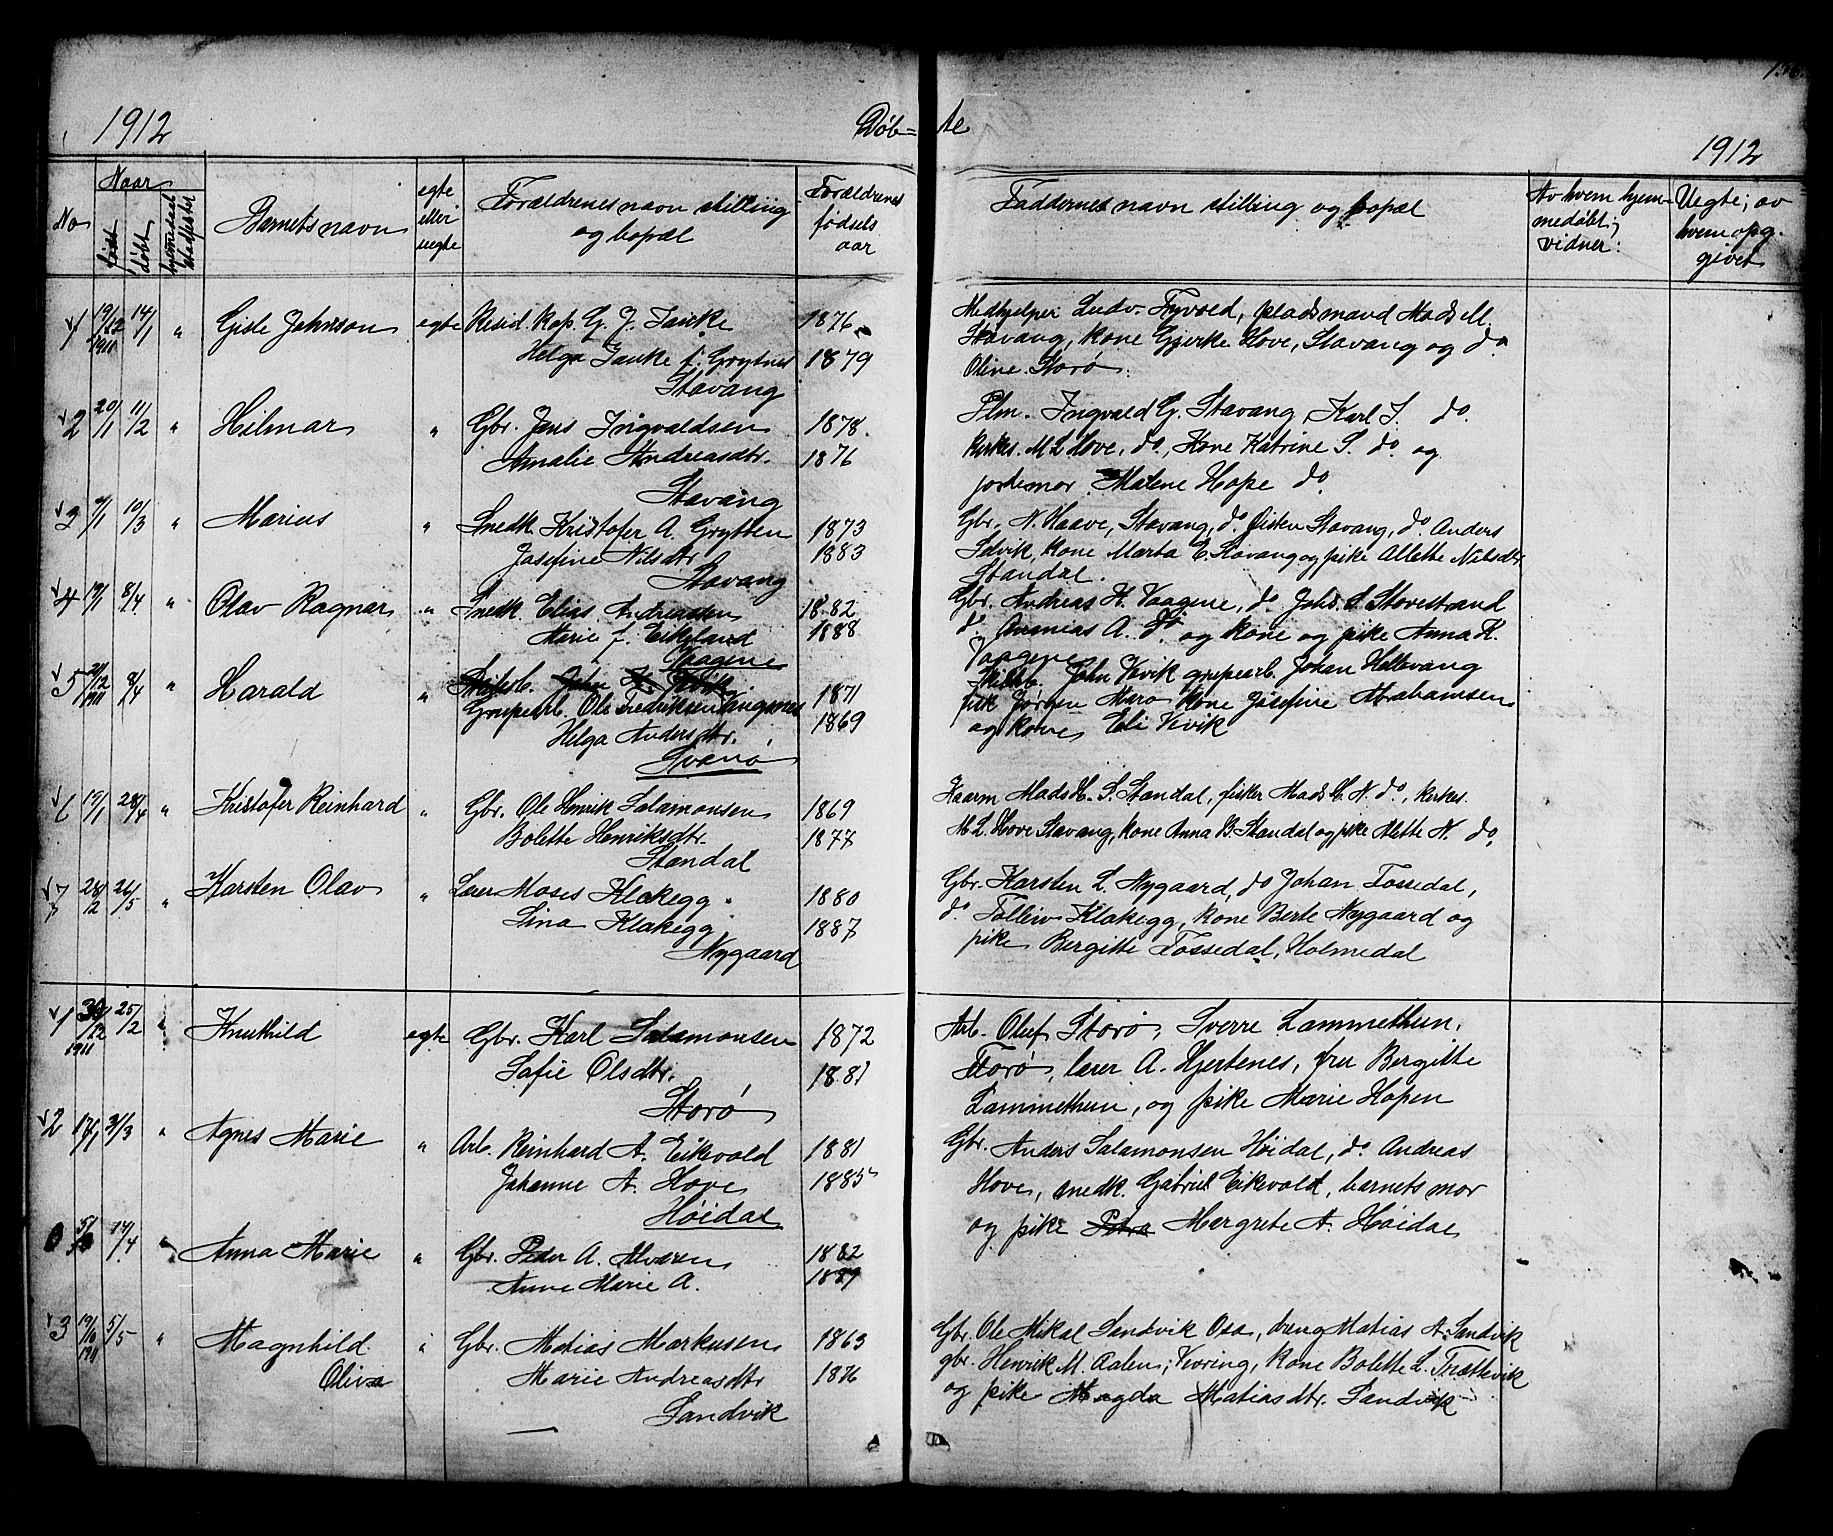 1912
Døb=
te
1912
No
Naar
født
døbt
Barnets navn
egte eller uegte
Forældrenes navn stilling og bopæl
Forældrenes fødsels aar
Faddernes navn stilling og bopæl
Av hvem hjem-medøbt; vidner:
Uegte; av hvem opgivet
1 19/12 1911 14/1 " Gisle Johnson egte Resid. Kap. G. J. Tanke 1876
Helga Tanke f. Grytner 1879
Stavang
Medhjelper Ludv. Fyvold, pladsmand Mads M.
Stavang, kone Gjerke Hove, Stavang og do
Oline Storø.
2 20/1 11/2 " Hilmar " Gbr. Jens Ingvaldsen 1878
Amalie Andreasdtr. 1876
Stavang
Plm. Ingvald G. Stavang, Karl I. do
Kirkes. M L Hove, do, Kone Katrine S. do og
jordemor Malene Hope do
3 10/3 " Marius " Snedk. Kristofer A. Grytten 1873
Josefine Nilsdtr 1883
Stavang
Gbr. N. Haave, Stavang, do Øisten Stavang, do Anders
Selvik, kone Marta E. Stavang og pike Allette Nilsdtr
Standal.
4 19/1 8/4 " Olav Ragnar " Snedk. Elias Andreassen 1882
Marie f. Eikeland 1888
Vaagene
Gbr. Andreas H. Vaagene, do Johs. S Stovestrand
do Ananias A. do og kone og pike Anna K.
Vaagene
5 1911 8/4 " Harald "
Grupearb. Ole Fredriksen Vangsnes 1871
Helga Andersdtr. 1869
Svanø
John Vevik grupearb. Johan Hellevang
fisk Jørgen Maro kone Josefine Abrahamsen
og kone Eli Vevik
6 19/1 28/4 " Kristofer Reinhard " Gbr. Ole Henrik Salamonsen 1869
Bolette Henriksdtr. 1877
Standal
Kaarm Mads H. S. Standal, fisker Mads H. N. do, kirkes.
M. L. Hove Stavang, kone Anna B. Standal og pike Alette N. do
7 28/2 26/5 " Karsten Olav " Lærer Moses Klakegg 1880
Lina Klakegg 1887
Nygaard
Gbr. Karsten L. Nygaard, do Johan Fossedal,
do Tolleiv Klakegg, kone Berte Nygaard og
pike Bergitte Fossedal, Holmedal
1 30/12 1911 25/2 " Knuthild egte Gbr. Karl Salamonsen 1872
Sofie Olsdtr. 1881
Storø
Arb. Oluf Storø, Sverre Lammethun,
Storø, lærer A. Hjertenes, fru Bergitte
Lammethun, og pike Marie Hopen
2 17/1 3/3 " Agnes Marie " Arb. Reinhard A. Eikevold 1881
Johanne A. Hove 1885
Høidal
Gbr. Anders Salamonsen Høidal, do Andreas
Hove, snedk. Gabriel Eikevold, barnets mor
og pike Petra Margrete A. Høidal
14/4 " Anna Marie " Gbr. Peder A. Alværen 1882
Anne Marie A.
3 19/10 1911 5/5 " Magnhild " Gbr. Matias Markusen 1863
Oliva Marie Andreasdtr 1876
Sandvik
Gbr. Ole Mikal Sandvik Osa, dreng Matias A. Sandvik
gbr. Henrik M. Aalen, Vevring, kone Bolette L. Trættevik
og pike Magda Matiasdtr. Sandvik